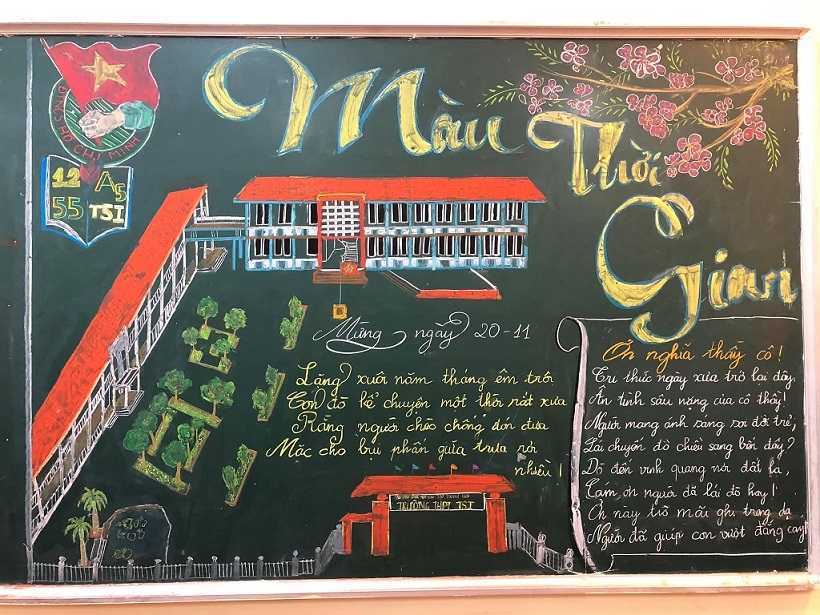 HỒ CHÍ MINH
12 A5
55 TSI
Màu
Thời
Gian
Mừng ngày 20-11
Lặng xuôi năm tháng êm trôi
Con đò kể chuyện một thời rất xưa
Rằng người chèo chống đón đưa
Mặc cho bụi phấn giữa trưa rơi
nhiều !
Ơn nghĩa thầy cô !
Tri thức ngày xưa trở lại đây,
Ân tình sâu nặng của cô thầy!
Người mang ánh sáng soi đời trẻ;
Lái chuyến đò chiều sang bến đầy?
Đò đến vinh quang nơi đất lạ,
Cám ơn người đã lái đò hay!
Ơn này trò mãi ghi trong dạ,
Người đã giúp con vượt đắng cay!
TRƯỜNG THPT TSI